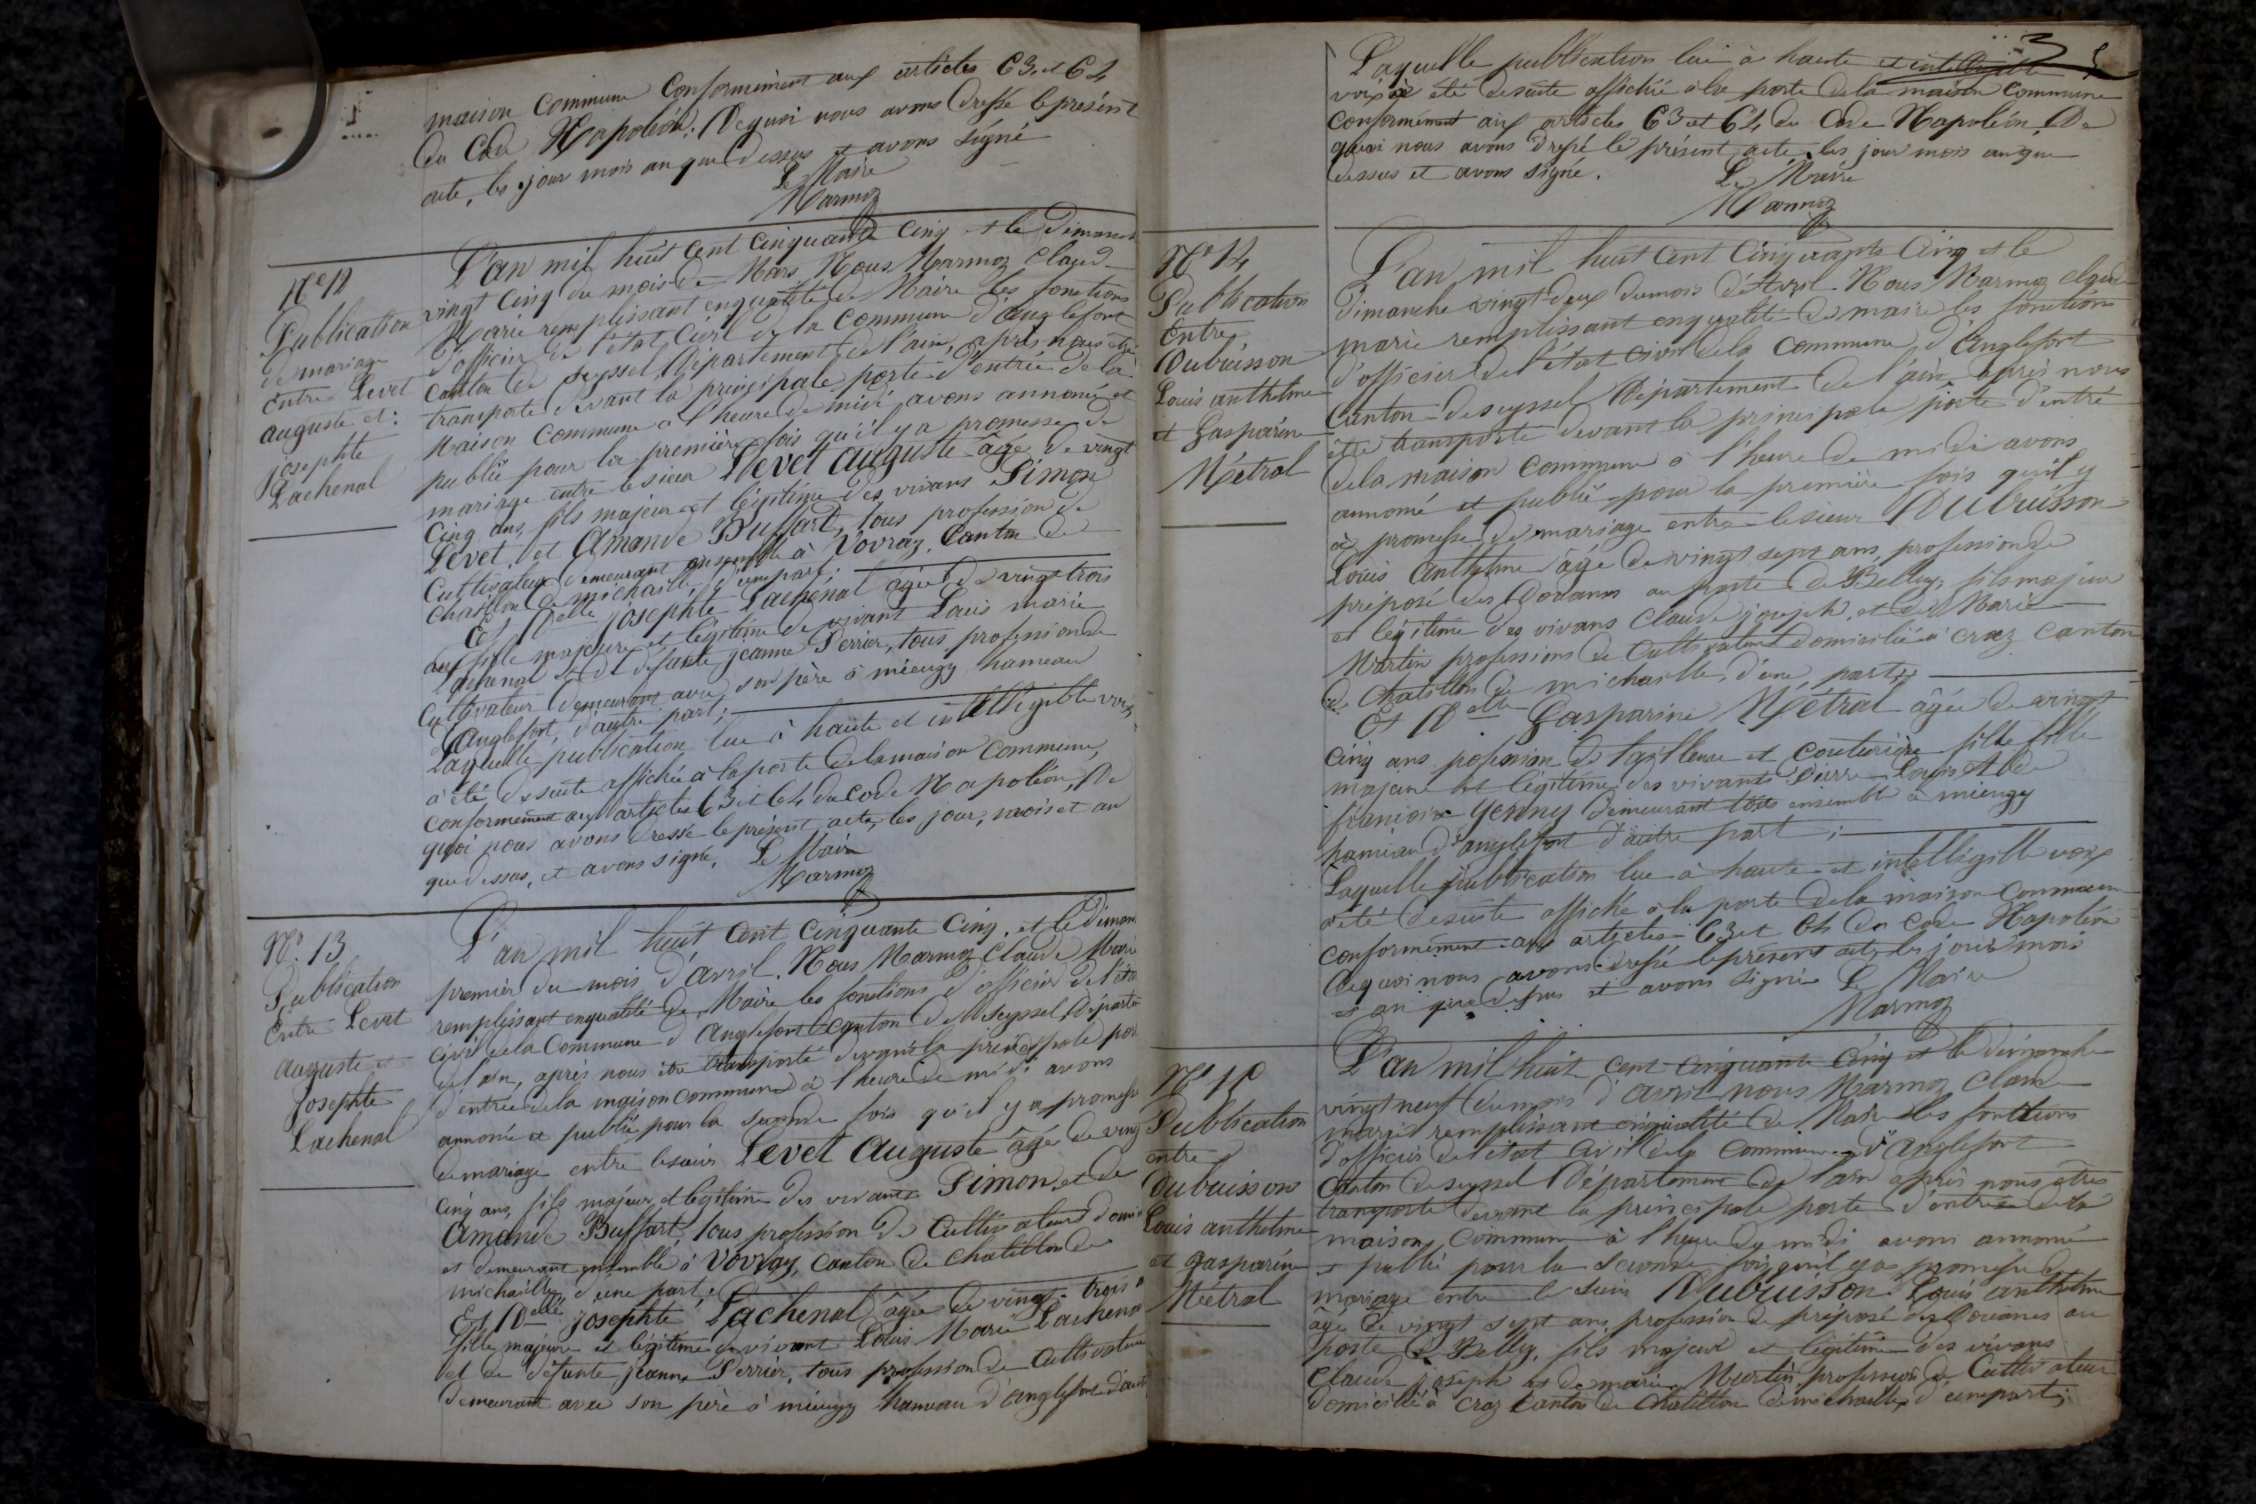 maison commune conformément aux articles 63 et 64
du Code Napoléon. De quoi nous avons dressé le présent
acte, les jour mois an que dessus et avons signé
Le Maire
Marmoz
N° 12
Publication
de mariage
entre Levet
auguste et
josephte
Lachenal
L'an mil huit cent cinquante cinq et le dimanche
vingt cinq du mois de Mars Nous Marmoz Claude
Marie remplissant en qualité de Maire les fonctions
d'officier de l'état Civil de la Commune d'anglefort
Canton de Seyssel Département de l'ain, après nous être
transporté devant la principale porte d'entrée de la
Maison commune a l'heure de midi avons annoncé et
publié pour la première fois qu'il y a promesse de
mariage entre le sieur Levet auguste âgé de vingt
cinq ans, fils majeur et légitime des vivans Simon
Levet et Amande Buffart, tous profession de
Cultivateur demeurant ensemble à Vovray, Canton de
Chatillon de michaille, d'une part.
Et Delle josephte Lachenal âgée de vingt trois
ans fille majeure et légitime de vivant Louis marie
Lachenal et de défunte jeanne Perrier, tous profession de
Cultivateur demeurant avec son père à mieugy hameau
d'anglefort, d'autre part;
Laquelle publication lue à haute et intelligible voix
a été de suite affichée à la porte de la maison commune,
conformément aux articles 63 et 64 du code Napoléon, De
quoi nous avons dressé le présent acte, les jour, mois et an
que dessus, et avons signé. Le Maire
Marmoz
N° 13
Publication
entre Levet
auguste et
josephte
Lachenal
L'an mil huit cent cinquante cinq, et le diman
premier du mois d'avril. Nous Marmoz Claude Marie
remplissant en qualité de Maire les fonctions d'officier de l'éta
civil de la Commune d'Anglefort Canton de Seyssel, Départe
de l'ain, après nous être transporté devant la principale por
d'entrée de la maison commune à l'heure de midi avons
annoncé et publié pour la seconde fois qu'il y a promesse
de mariage entre le sieur Levet Auguste âgé de ving
cinq ans, fils majeur et légitime des vivants Simon et de
Amande Buffart, tous profession de Cultivateur domi
et demeurant ensemble à Vovray, canton de chatillon de
michaille, d'une part.
Et Delle josephte Lachenal âgée de vingt trois a
fille majeure et légitime de vivant Louis Marie Lachena
et de défunte jeanne Perrier, tous profession de Cultivateur
demeurant avec son père à mieugy hameau d'anglefort d'aut
3
Laquelle publication lue à haute et intelligible
voix a été de suite affichée à la porte de la maison Commune
conformément aux articles 63 et 64 du Code Napoléon. De
quoi nous avons dressé le présent acte les jour mois an que
dessus et avons signé. Le Maire
Marmoz
N° 14
Publication
entre
Dubuisson
Louis anthelme
et Gasparine
Métral
L'an mil huit cent cinquante cinq et le
dimanche vingt deux du mois d'Avril. Nous Marmoz Claude
marie remplissant en qualité de maire les fonctions
d'officier de l'état civil de la Commune d'Anglefort
Canton de seyssel Département de l'ain, après nous
être transporté devant la principale porte d'entré
de la maison commune à l'heure de midi avons
annoncé et publié pour la première fois qu'il y
a promesse de mariage entre le sieur Dubuisson
Louis Anthelme âgé de vingt sept ans, profession de
préposé des Douanes au poste de Belley, fils majeur
et légitime des vivans Claude joseph et de Marie
Martin profession de Cultivateur domicilié à craz canton
de Chatillon de michaille, d'une part;
Et Delle Gasparine Métral âgée de vingt
cinq ans profession de tailleuse et couturière fille fille
majeure et légitime des vivants Pierre Louis et de
françoise Genny demeurant tous ensemble à mieugy
hameau d'anglefort d'autre part;
Laquelle publication lue à haute et intelligible voix
a été de suite affiché à la porte de la maison commune
conformément aux articles 63 et 64 du code Napoléon
de quoi nous avons dressé le présent acte les jour mois
et an que dessus et avons signé Le Maire
Marmoz
N° 15
Publication
entre
Dubuisson
Louis anthelme
et gasparine
Métral
L'an mil huit cent cinquante cinq et le dimanche
vingt neuf du mois d'avril nous Marmoz Claude
marie remplissant en qualité de Maire les fonctions
d'officier de l'état civil de la commune d'Anglefort
Canton de seyssel Département de l'ain après nous être
transporté devant la principale porte d'entrée de la
maison commune à l'heure de midi avons annoncé
et publié pour la seconde fois qu'il y a promesse de
mariage entre le sieur Dubuisson Louis anthelme
âgé de vingt sept ans profession de préposé des Douanes au
poste de Belley, fils majeur et légitime des vivans
Claude joseph et de marie Martin profession de Cultivateur
domicilié à craz Canton de Chatillon de michaille, d'une part;